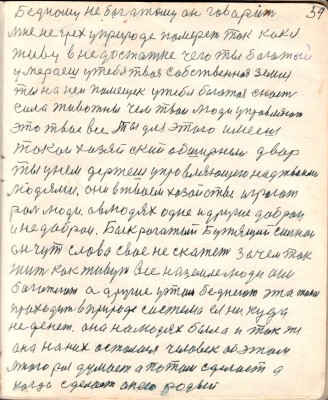 59
Бедному не богатому он говорит
мне не грех у природе помереть так как и
живу в недостатке чего ты богатой
умераеш у тебя твоя собственная земля
ты на ней помещек у тебя богатая скот
сила животны чем твои люди управляют
это твое все. Ты для этого имееш
такой хозяйский обширный двор
ты у нем держеш управляющего над твоими
людями. они в твоем хозяйстве играют
рол люди. а в людях одне и другие добрыи
и недобрыи. Бык рогатый Бужящий сильно
он чут слова свое не скажет зачем так
жит как живут все на земле люди они
богатеют а другие у этом беднеют эта такая
проходит в природе система ей ни куда
не денет. она на людях была и так же
она на них осталася человек об этом
много раз думает а потом сделает а
когда сделает опять родый